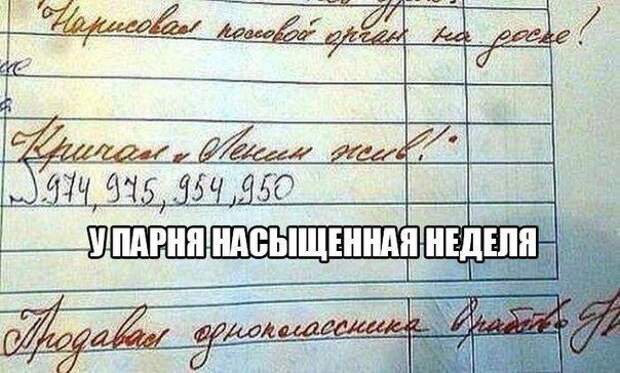 Нарисовал половой орган на доске!
Кричал „Ленин жив!"
974, 975, 954, 950
У ПАРНЯ НАСЫЩЕННАЯ НЕДЕЛЯ
Продавал одноклассника в рабство